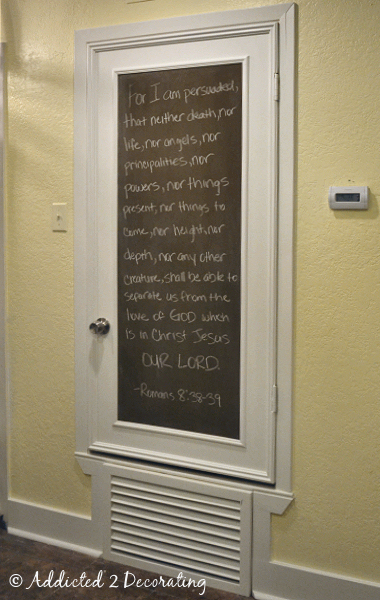 For I am persuaded,
that neither death, nor
life, nor angels, nor
principalities, nor
powers, nor things
present, nor things to
come, nor height, nor
depth, nor any other
creature, shall be able to
separate us from the
love of GOD which
is in Christ Jesus
OUR LORD.
-Romans 8:38-39
© Addicted 2 Decorating